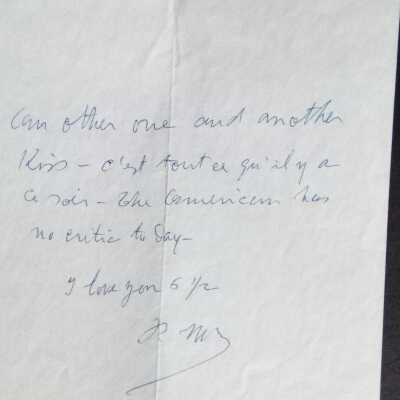 Can other one and another
Kiss – c'est tout ce qu'il y a
ce soir – The american has
no critic to Day –
I love you 6 1/2